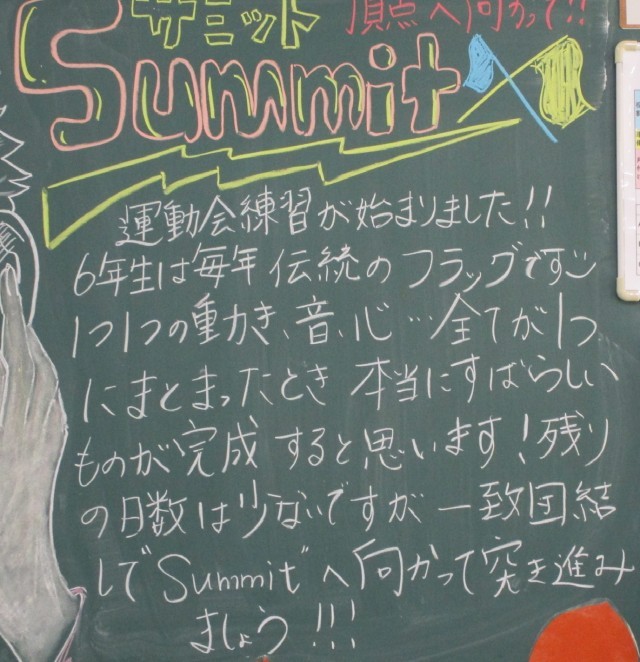 サミット 頂点へ向かって!!
Summit
運動会練習が始まりました!!
6年生は毎年 伝統の フラッグです
1つ1つの動き、音、心…全てが1つ
にまとまったとき 本当にすばらしい
ものが完成 すると思います!残り
の日数は少ないですが 一致団結
して"Summit"へ向かって突き進み
ましょう!!!